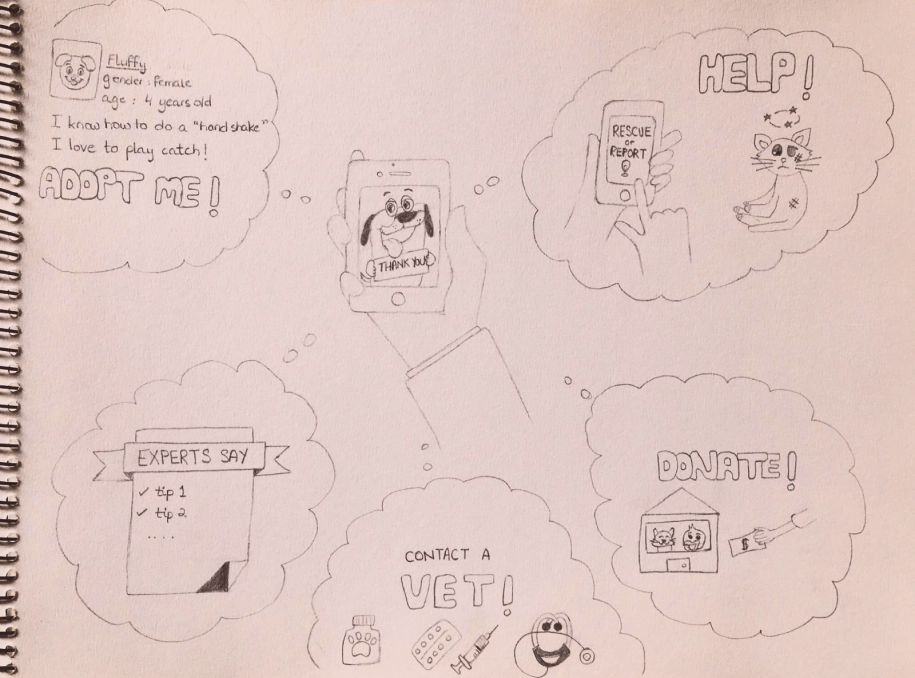 Fluffy
gender : female
age : 4 years old
I know how to do a "handshake"
I love to play catch!
ADOPT ME!
HELP!
RESCUE
or
REPORT
THANK YOU!
EXPERTS SAY
✓ tip 1
✓ tip 2
....
DONATE!
$
CONTACT A
VET!